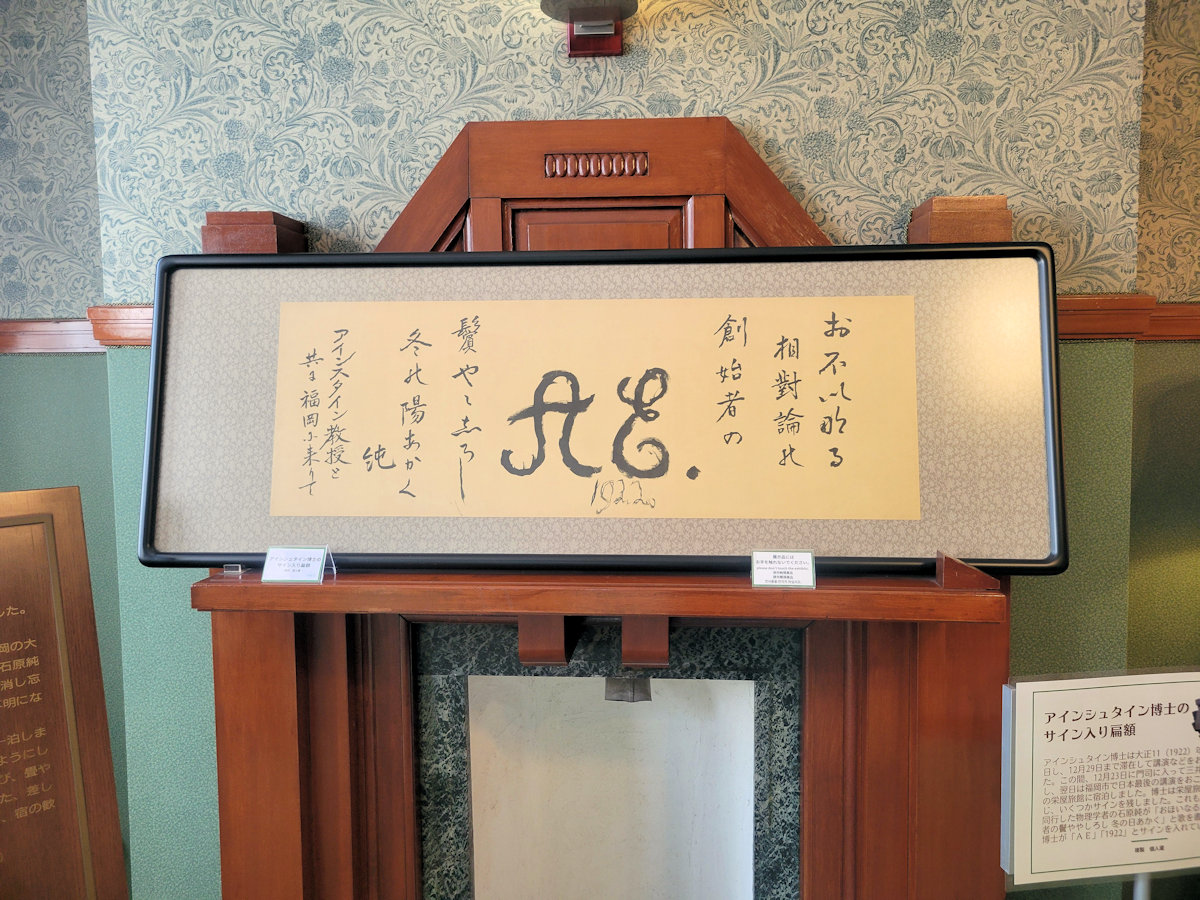 お不いなる
相對論の
創始者の
A E.
1922.
鬢やゝしろし
冬の陽あかく
純
アインスタイン教授と
共に福岡に来りて
アインシュタイン博士の
サイン入り扁額
展示品には
お手を触れないでください。
please don't touch the exhibits.
した。
岡の大
石原純
消し忘
明にな
一泊しま
ようにし
び、畳や
た、差し
、宿の歓
アインシュタイン博士の
サイン入り扁額
アインシュタイン博士は大正11（1922）年
日し、12月29日まで滞在して講演などをお
た。この間、12月23日に門司に入って三
し、翌日は福岡市で日本最後の講演をおこ
の栄屋旅館に宿泊しました。博士は栄屋旅
じ、いくつかサインを残しました。これも
同行した物理学者の石原純が「おほいなる
者の鬢ややしろし 冬の日あかく」と歌を書
博士が「ＡＥ」「1922」とサインを入れてい
複製 個人蔵